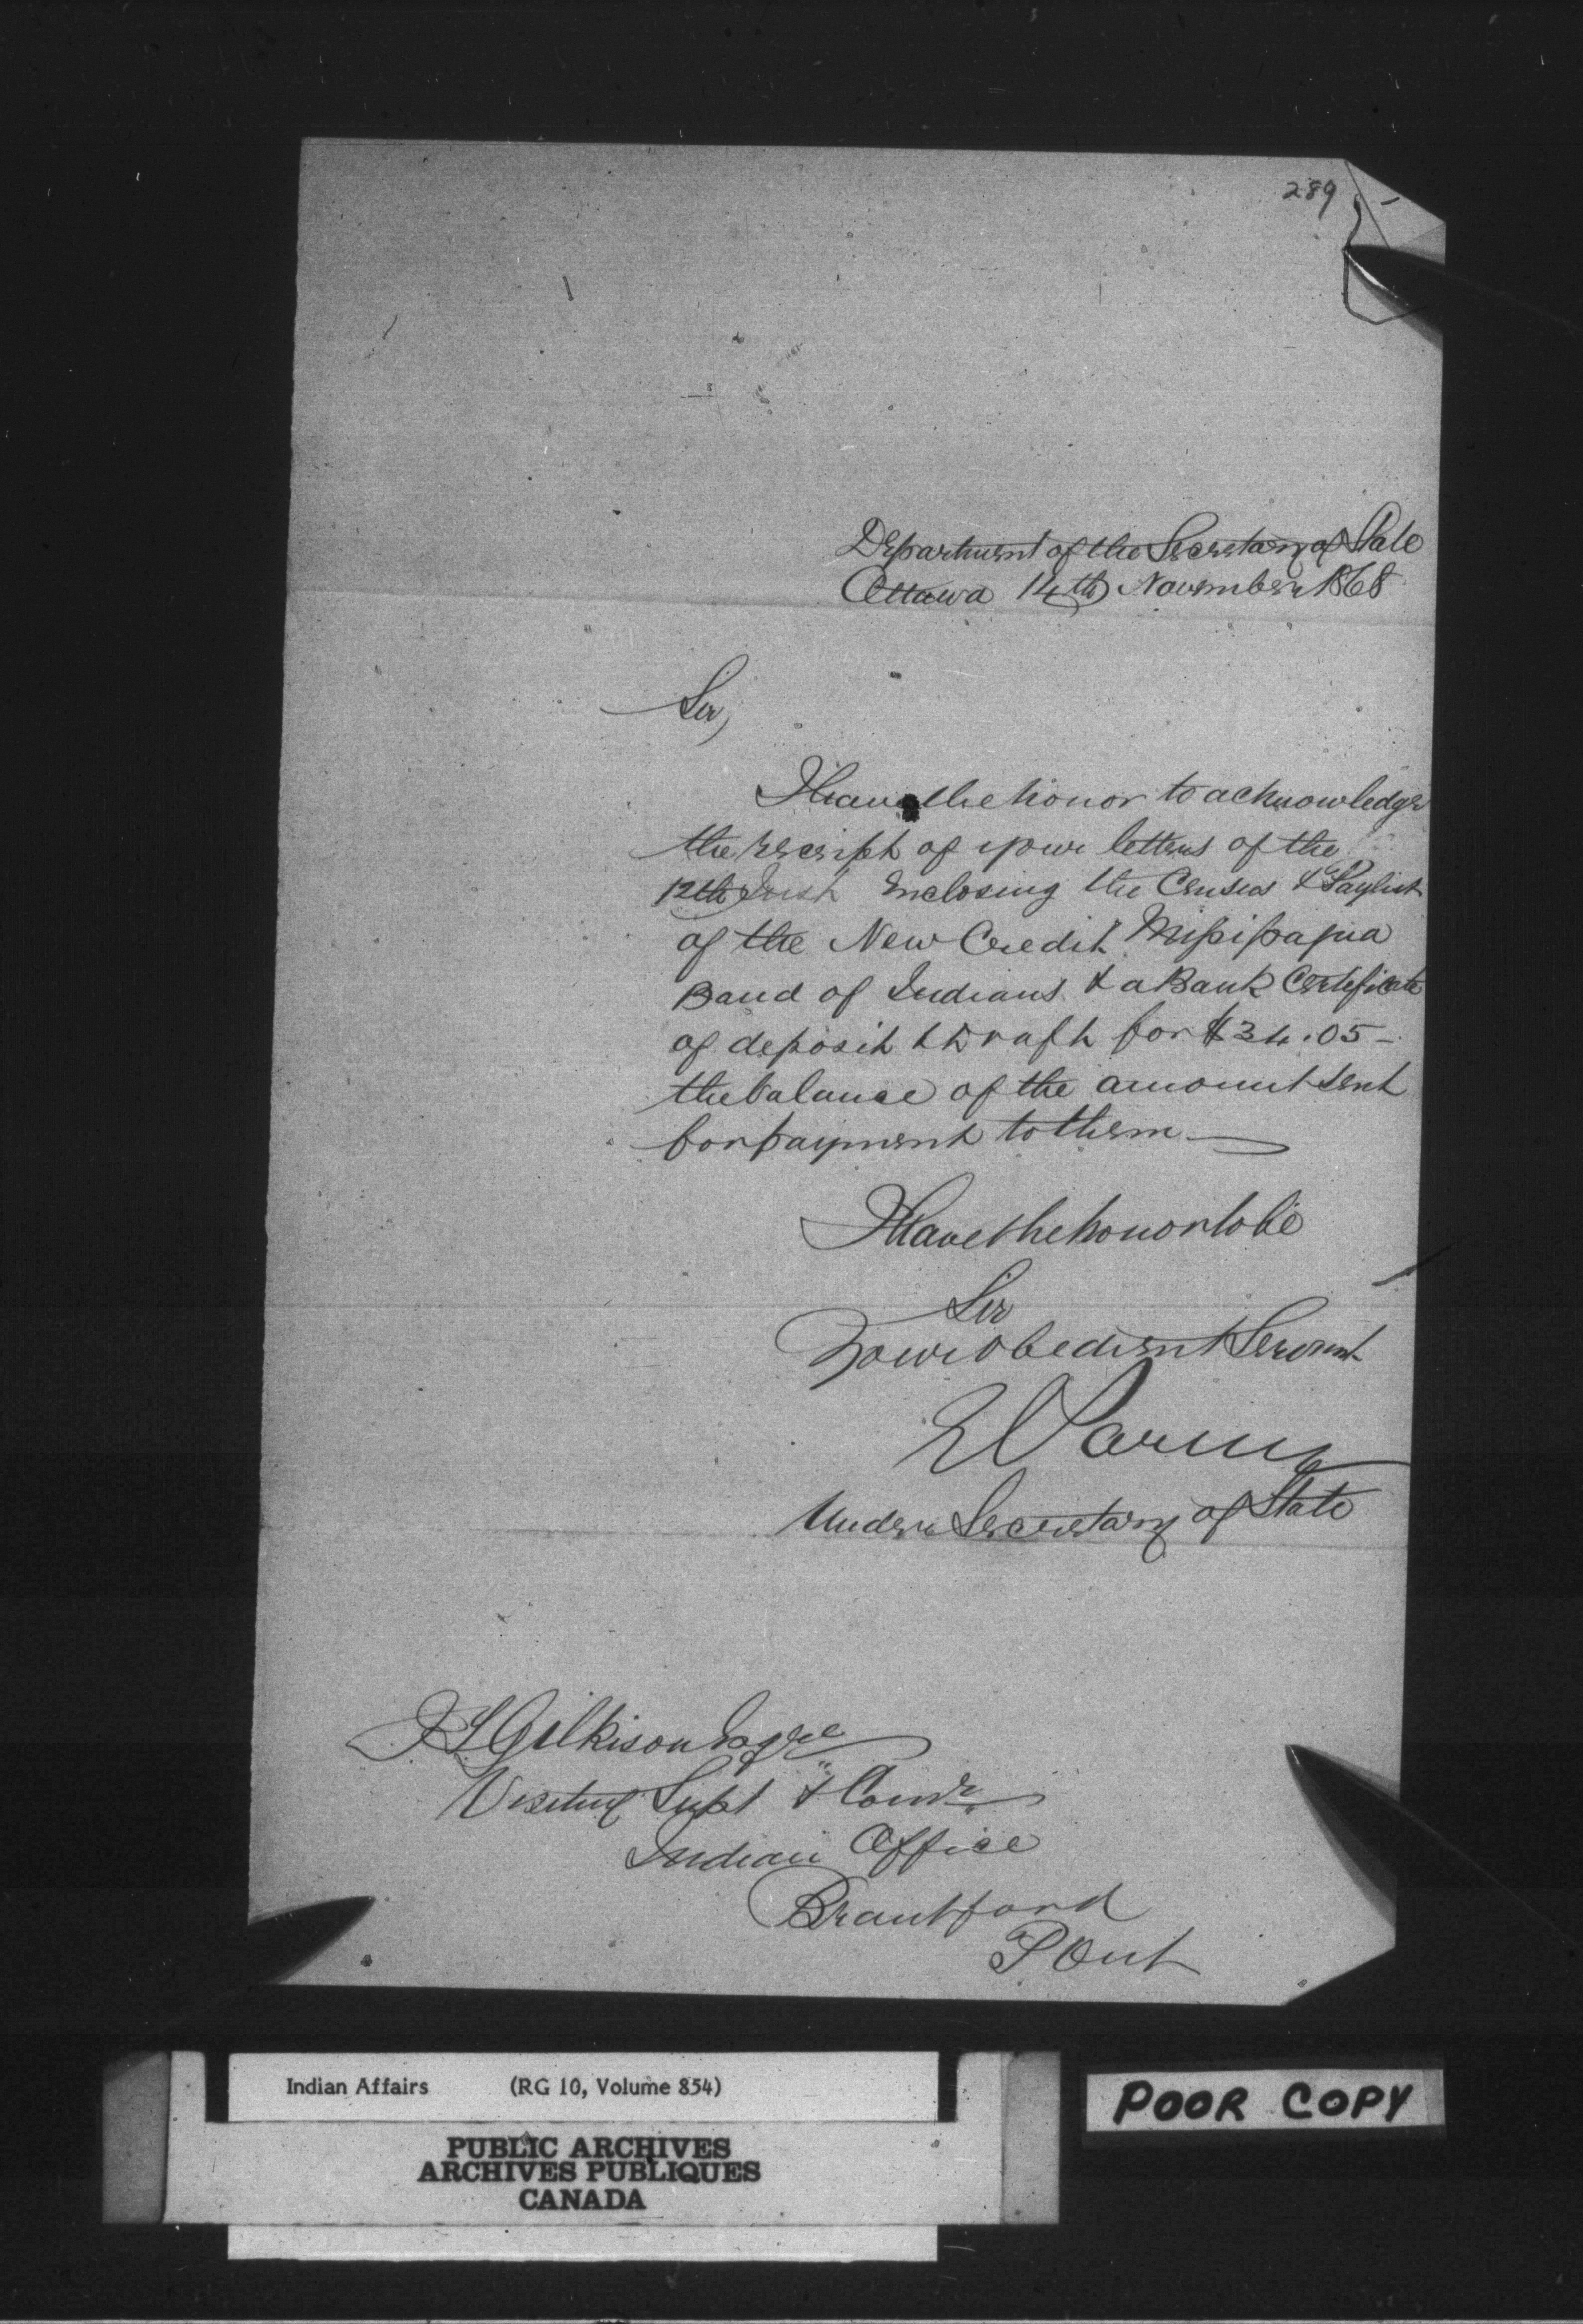 289
Department of the Secretary of State
Ottawa 14th November 1868
Sir,
I have the honor to acknowledge
the receipt of your letters of the
12th Inst enclosing the Census & Paylist
of the New Credit Missisagua
Band of Indians & a Bank Certificate
of deposit & Draft for $34.05 –
the balance of the amount sent
for payment to them
I Have the honor to be
Sir
Your Obedient Servant
E Parent
Under Secretary of State
J T Gilkison Esqre
Visiting Supt & Comr
Indian Office
Brantford
P Ont
Indian Affairs (RG 10, Volume 854)
PUBLIC ARCHIVES
ARCHIVES PUBLIQUES
CANADA
POOR COPY